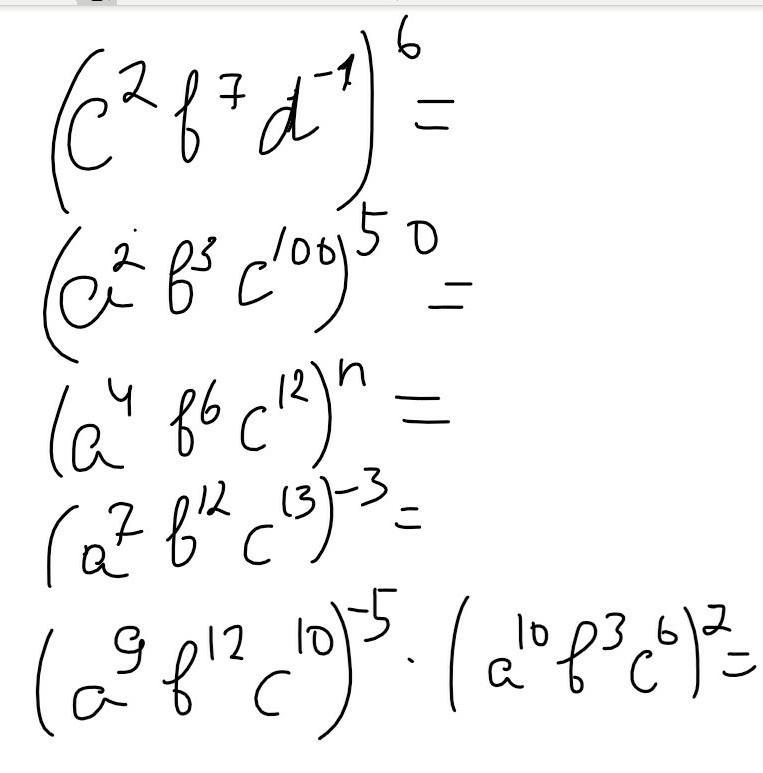 (c² b⁷ d⁻¹)⁶ =
(a² b³ c¹⁰⁰)⁵⁰ =
(a⁴ b⁶ c¹²)ⁿ =
(a⁷ b¹² c¹³)⁻³ =
(a⁹ b¹² c¹⁰)⁻⁵ · (a¹⁰ b³ c⁶)² =